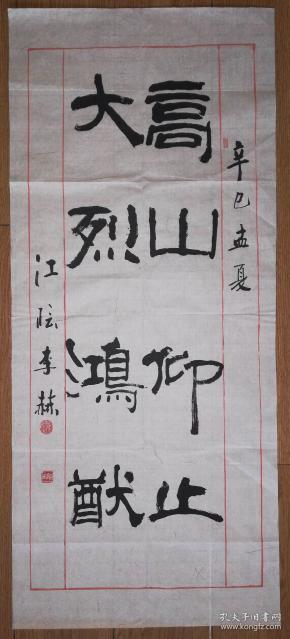 辛巳孟夏
高山仰止
大烈鸿猷
江陵李赫
孔夫子旧书网
www.kongfz.com